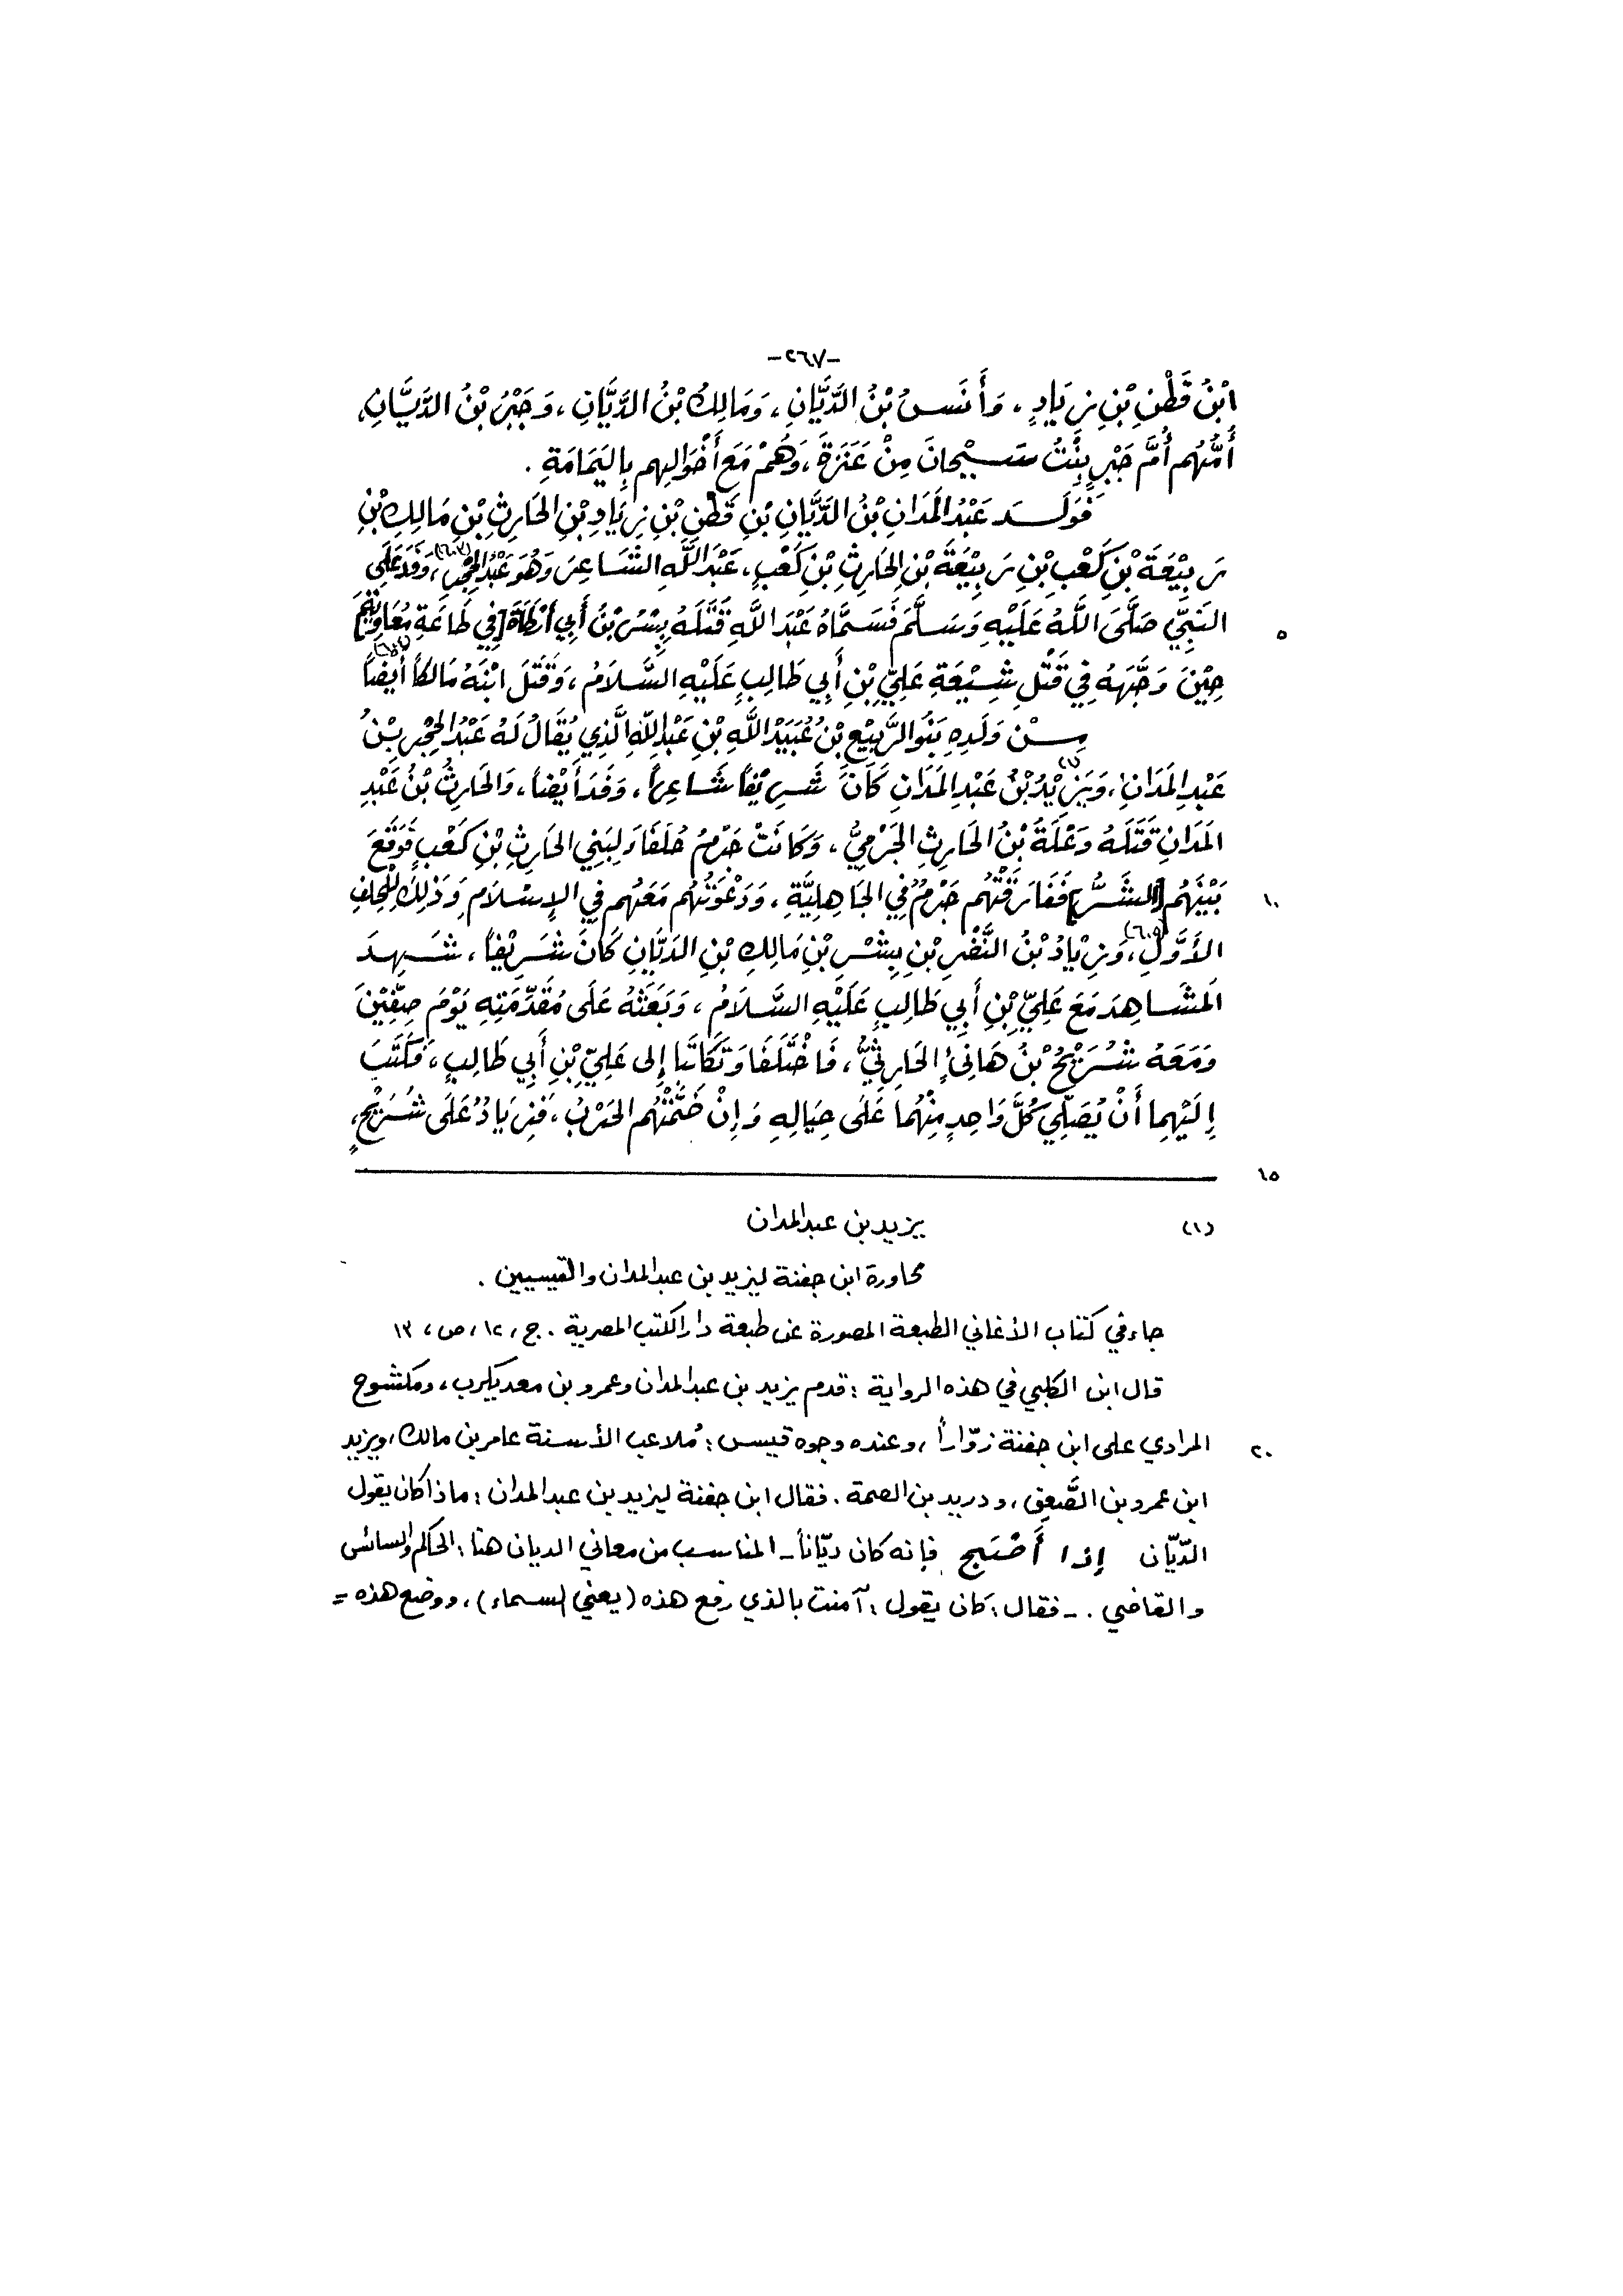 -٢٦٧-
ابْنُ قَطَنِ بْنِ زِيَادٍ، وَأَنَسُ بْنُ الدَّيَّانِ، وَمَالِكُ بْنُ الدَّيَّانِ، وَجَبْرُ بْنُ الدَّيَّانِ،
أُمُّهُم أُمُّ جَبْرٍ بِنْتُ سَيْحَانَ مِنْ عَنَزَةَ، وَهُمْ مَعَ أَخْوَالِهِم بِاليَمَامَةِ.
فَوَلَدَ عَبْدُ المَدَانِ بْنُ الدَّيَّانِ بْنِ قَطَنِ بْنِ زِيَادِ بْنِ الحَارِثِ بْنِ مَالِكِ بْنِ
رَبِيْعَةَ بْنِ كَعْبِ بْنِ رَبِيْعَةَ بْنِ الحَارِثِ بْنِ كَعْبٍ، عَبْدَ اللَّهِ الشَّاعِرَ وَهُوَ عَبْدُ الحِجْرِ (٦٠٣)، وَفَدَ عَلَى
النَّبِيِّ صَلَّى اللَّهُ عَلَيْهِ وَسَلَّمَ فَسَمَّاهُ عَبْدَ اللَّهِ قَتَلَهُ بِسْرُ بْنُ أَبِي أَرْطَاةَ [فِي طَاعَةِ مُعَاوِيَةَ]
٥
حِيْنَ وَجَّهَهُ فِي قَتْلِ شِيْعَةِ عَلِيِّ بْنِ أَبِي طَالِبٍ عَلَيْهِ السَّلَامُ، وَقَتَلَ ابْنَهُ مَالِكاً أَيْضاً (٦٠٤)
مِنْ وَلَدِهِ بَنُو الرَّبِيْعِ بْنُ عُبَيْدِ اللَّهِ بْنِ عَبْدِ اللَّهِ الَّذِي يُقَالُ لَهُ عَبْدُ الحِجْرِ بْنُ
عَبْدِ المَدَانِ، وَيَزِيْدُ بْنُ (١) عَبْدِ المَدَانِ كَانَ شَرِيْفاً شَاعِراً، وَفَدَ أَيْضاً، وَالحَارِثُ بْنُ عَبْدِ
المَدَانِ قَتَلَهُ وَعْلَةُ بْنُ الحَارِثِ الجَرْمِيُّ، وَكَانَتْ جَرْمُ حُلَفَاءَ لِبَنِي الحَارِثِ بْنِ كَعْبٍ فَوَقَعَ
بَيْنَهُم [الشَّرُّ] فَفَارَقَتْهُم جَرْمٌ فِي الجَاهِلِيَّةِ، وَدَعْوَتُهُم مَعَهُم فِي الإِسْلَامِ وَذَلِكَ لِلْحِلْفِ
١٠
الأَوَّلِ (٦٠٥)، وَزِيَادُ بْنُ النَّضْرِ بْنِ بِشْرِ بْنِ مَالِكِ بْنِ الدَّيَّانِ كَانَ شَرِيْفاً، شَهِدَ
المَشَاهِدَ مَعَ عَلِيِّ بْنِ أَبِي طَالِبٍ عَلَيْهِ السَّلَامُ، وَبَعَثَهُ عَلَى مُقَدِّمَتِهِ يَوْمَ صِفِّيْنَ
وَمَعَهُ شُرَيْحُ بْنُ هَانِئٍ الحَارِثِيُّ، فَاخْتَلَفَا وَتَكَاتَبَا إِلى عَلِيِّ بْنِ أَبِي طَالِبٍ، فَكَتَبَ
إِلَيْهِمَا أَنْ يُصَلِّيَ كُلُّ وَاحِدٍ مِنْهُمَا عَلَى حِيَالِهِ وَإِنْ ضَمَّتْهُم الحَرْبُ، فَزِيَادُ عَلَى شُرَيْحٍ،
١٥
(١) يزيد بن عبد المدان
محاورة ابن جفنة ليزيد بن عبد المدان والقيسيين.
جاء في كتاب الأغاني الطبعة المصورة عن طبعة دار الكتب المصرية. ج، ١٢، ص، ١٣
قال ابن الكلبي في هذه الرواية: قدم يزيد بن عبد المدان وعمرو بن معديكرب، ومكشوح
المرادي على ابن جفنة زوّاراً، وعنده وجوه قيس: مُلاعب الأسنة عامر بن مالك، ويزيد
٢٠
ابن عمرو بن الصَّعِق، ودريد بن الصمة. فقال ابن جفنة ليزيد بن عبد المدان: ماذا كان يقول
الدّيّان إذا أَصْبَح فإنه كان ديّاناً - المناسب من معاني الديان هنا: الحاكم والسائس
والقاضي. - فقال: كان يقول: آمنت بالذي رفع هذه (يعني السماء)، ووضع هذه =